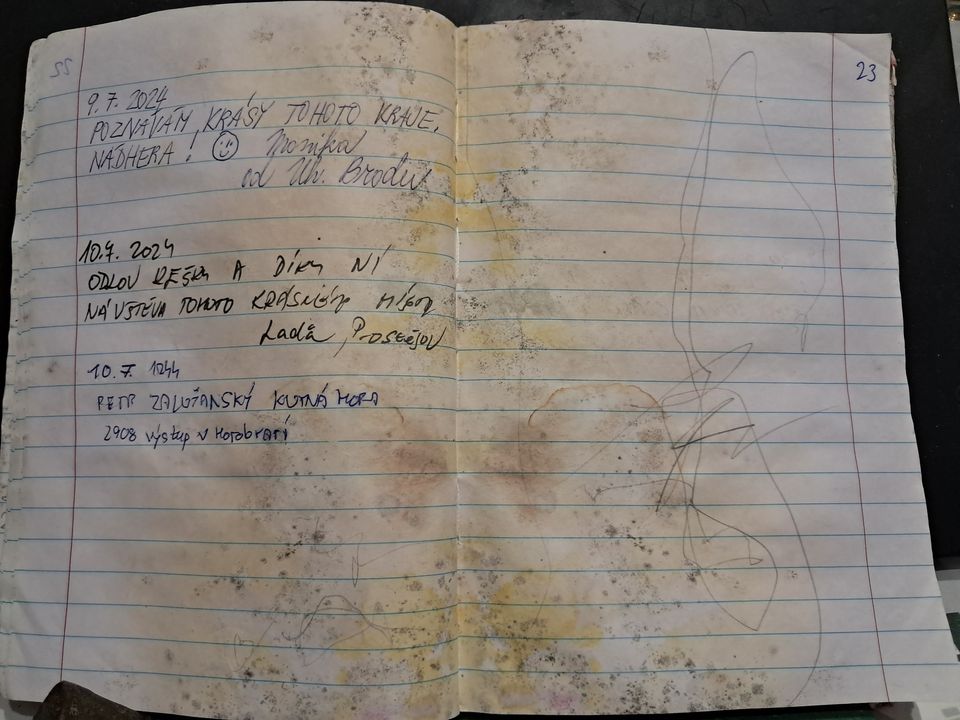 22
9.7.2024
POZNÁVÁM KRÁSY TOHOTO KRAJE.
NÁDHERA! Monika
od Uh. Brodu
10.7. 2024
ODLOV KEŠKY A DÍKY NÍ
NÁVSTĚVA TOHOTO KRÁSNÉHO MÍSTA
Lada, PROSTĚJOV
10.7.
PETR ZALUŽANSKÝ KUTNÁ HORA
2908 výstup v Horobraní
23